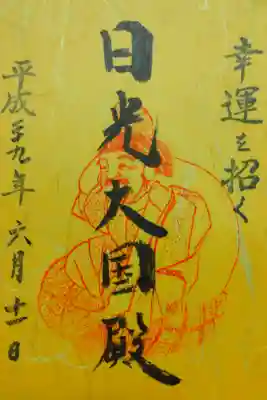 幸運を招く
日光大国殿
平成廿九年 六月十一日